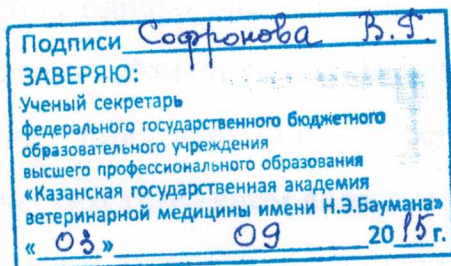 Подписи Софронова В.Г.
ЗАВЕРЯЮ:
Ученый секретарь
федерального государственного бюджетного
образовательного учреждения
высшего профессионального образования
«Казанская государственная академия
ветеринарной медицины имени Н.Э.Баумана»
« 03 » 09 2015г.